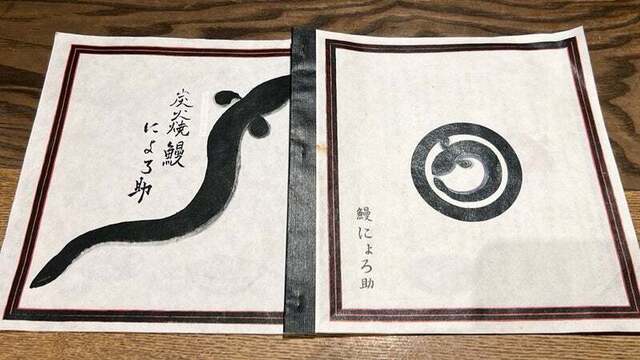 炭火焼鰻
にょろ助
鰻にょろ助